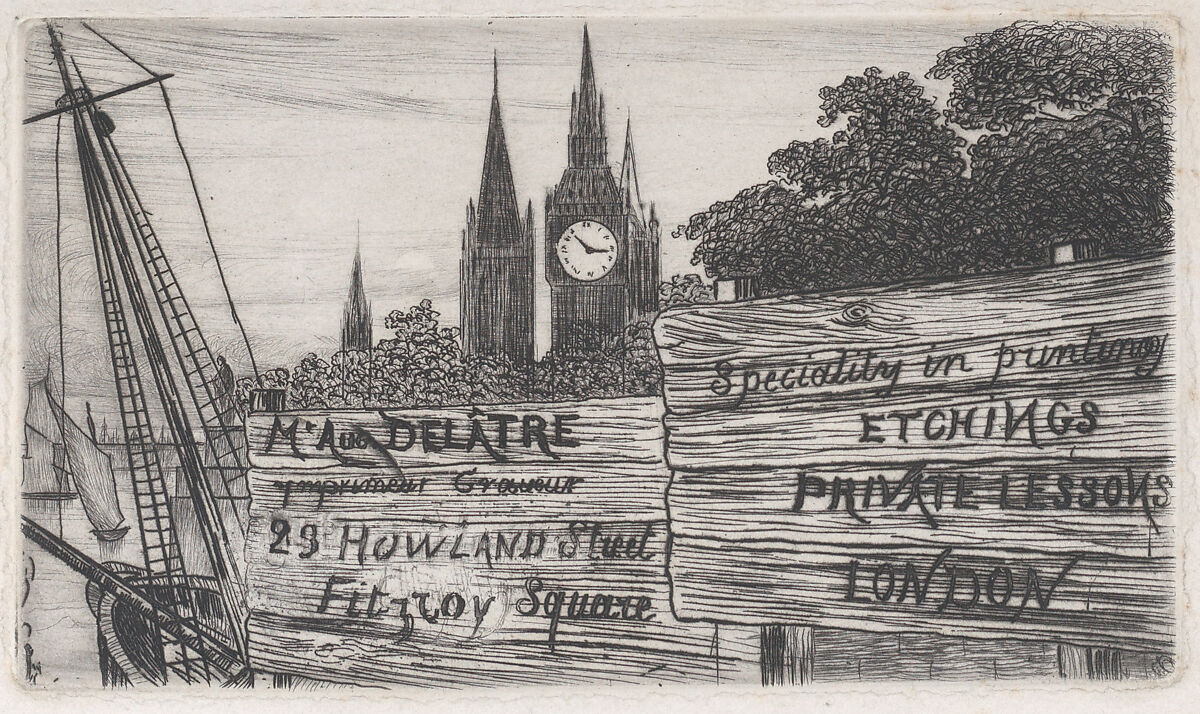 Mr Aug DELÂTRE
imprimeur Graveur
23 HOWLAND Street
Fitzroy Square
Speciality in
ETCHINGS
PRIVATE LESSONS
LONDON